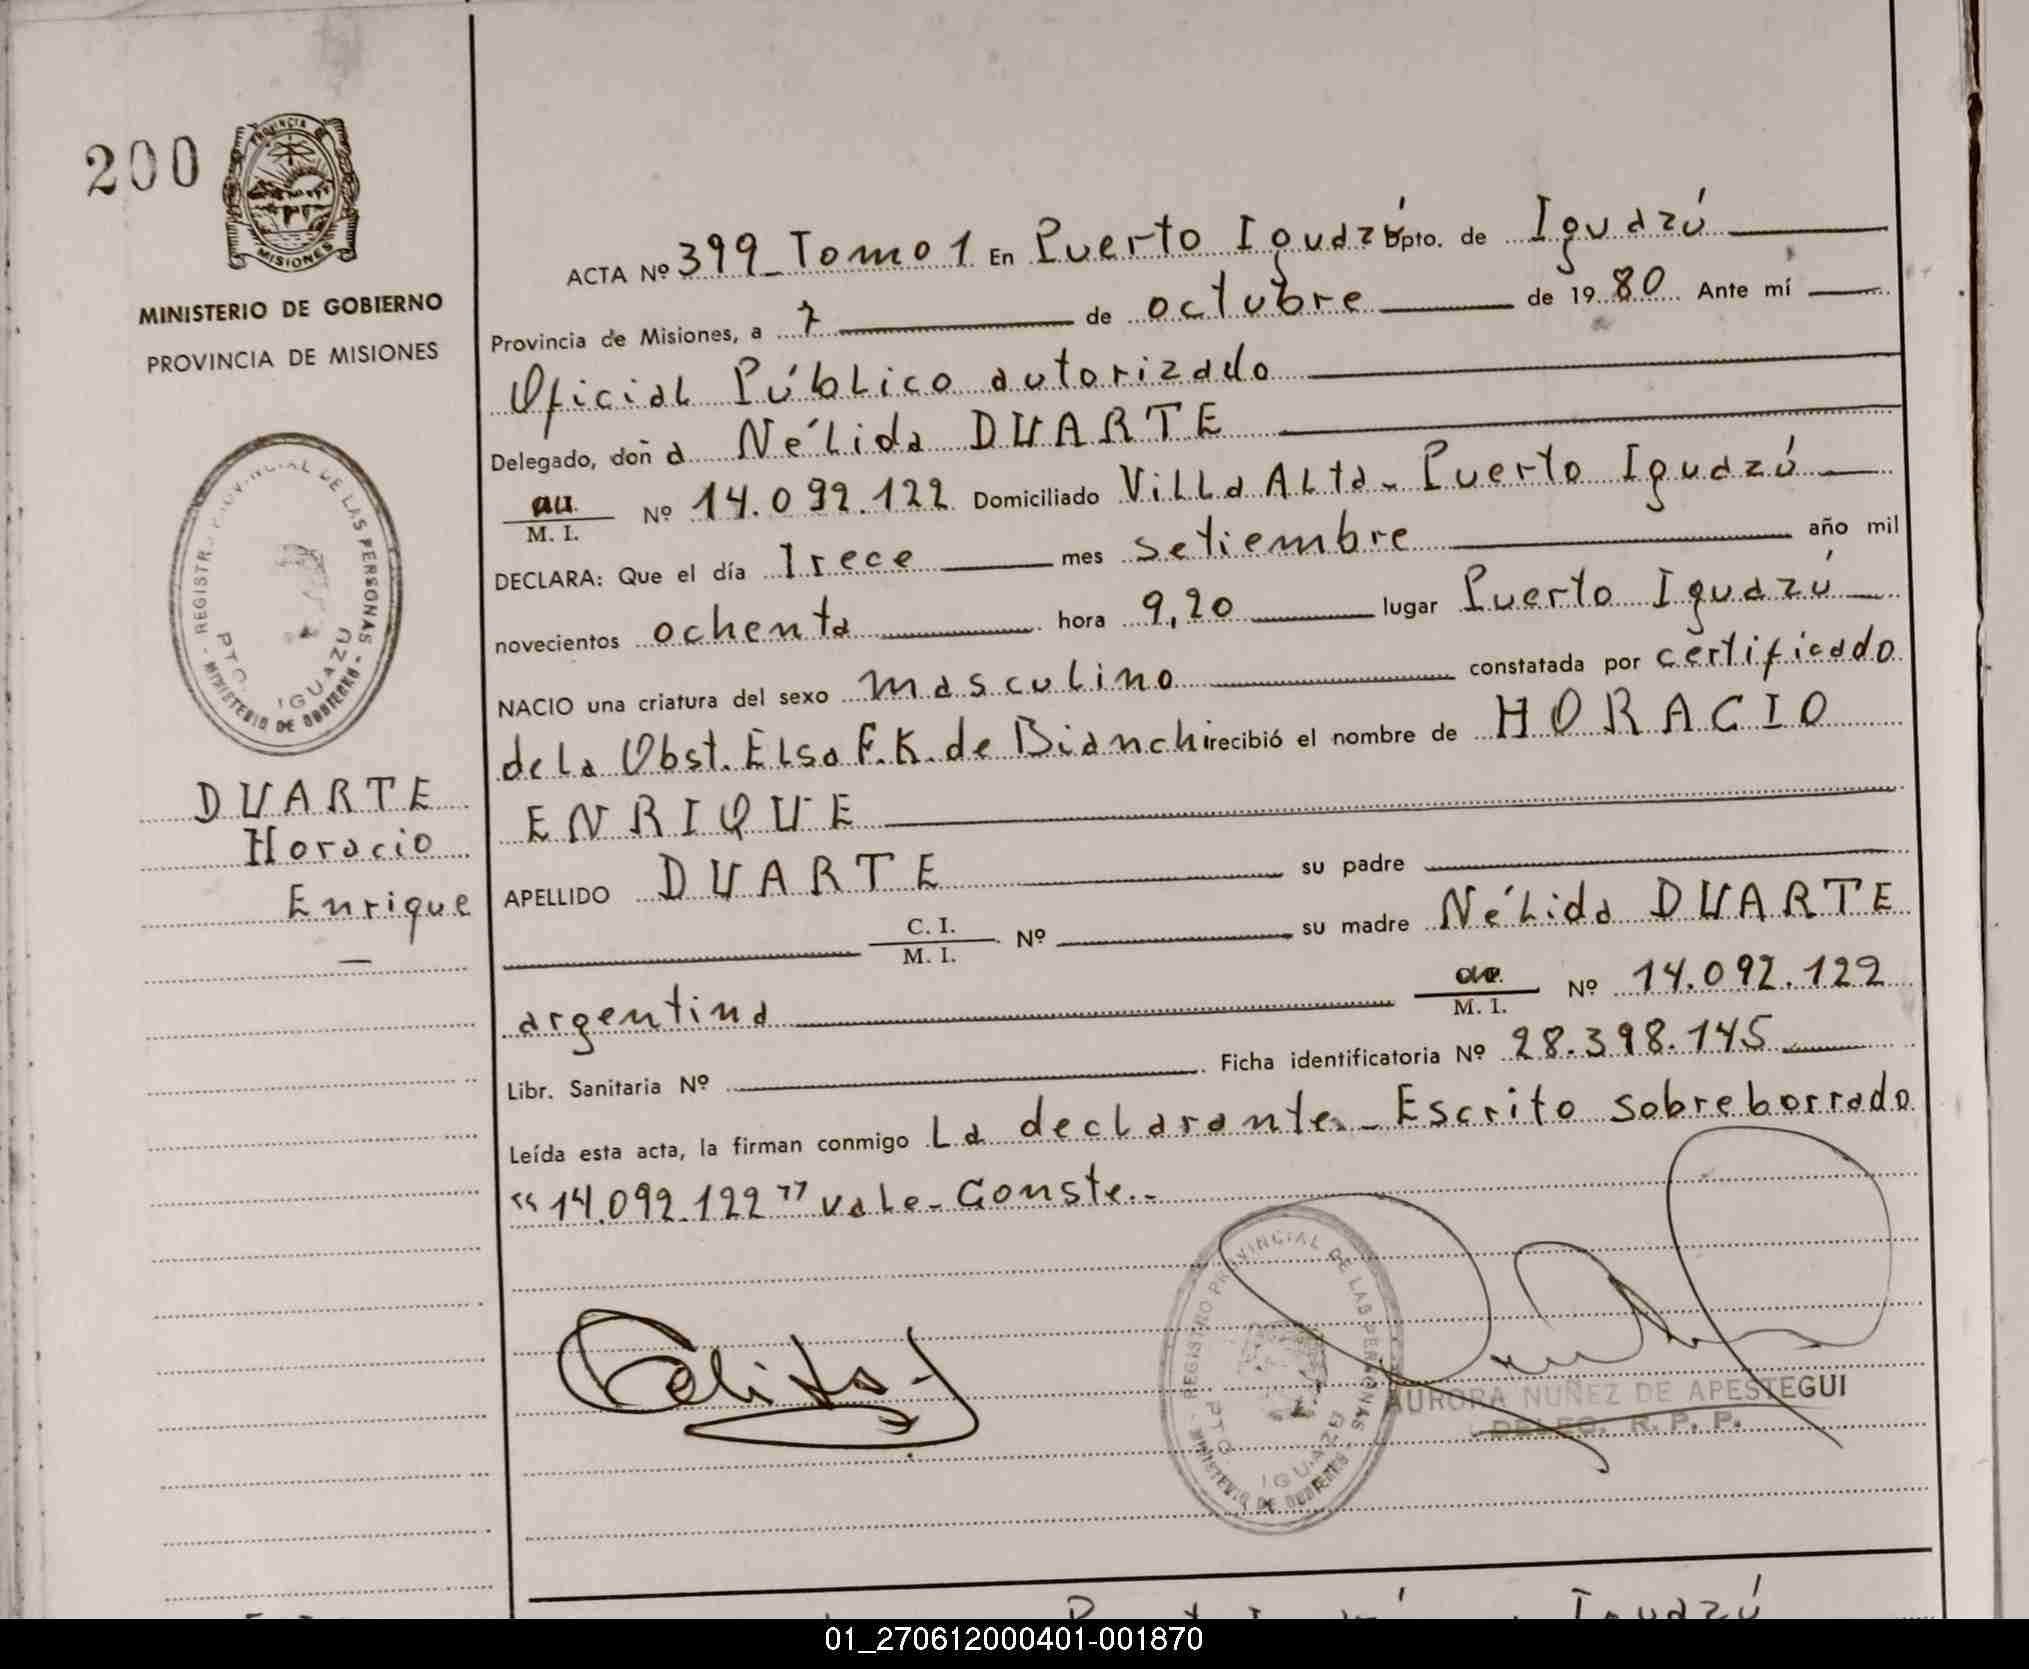 200
PROVINCIA DE
MISIONES
MINISTERIO DE GOBIERNO
PROVINCIA DE MISIONES
REGISTRO PROVINCIAL DE LAS PERSONAS
PTO. IGUAZU
MINISTERIO DE GOBIERNO
DUARTE
Horacio
Enrique
ACTA Nº 399_Tomo 1 En Puerto Iguazú Dpto. de Iguazú
Provincia de Misiones, a 7 de octubre de 1980 Ante mí
Oficial Público autorizado
Delegado, doña Nélida DUARTE
M. I. Nº 14.092.122 Domiciliado Villa Alta- Puerto Iguazú
DECLARA: Que el día Trece mes setiembre año mil
novecientos ochenta hora 9,20 lugar Puerto Iguazú
NACIO una criatura del sexo masculino constatada por certificado
de la Obst. Elsa F.K. de Bianchi recibió el nombre de HORACIO
ENRIQUE
APELLIDO DUARTE su padre
C. I.
M. I. Nº su madre Nélida DUARTE
argentina M. I. Nº 14.092.122
Libr. Sanitaria Nº Ficha identificatoria Nº 28.398.145
Leída esta acta, la firman conmigo La declarante.- Escrito sobreborrado
"14.092.122" vale- Conste.-
REGISTRO PROVINCIAL DE LAS PERSONAS
PTO. IGUAZU
MINISTERIO DE GOBIERNO
AURORA NUÑEZ DE APESTEGUI
DELEG. R. P. P.
01_270612000401-001870